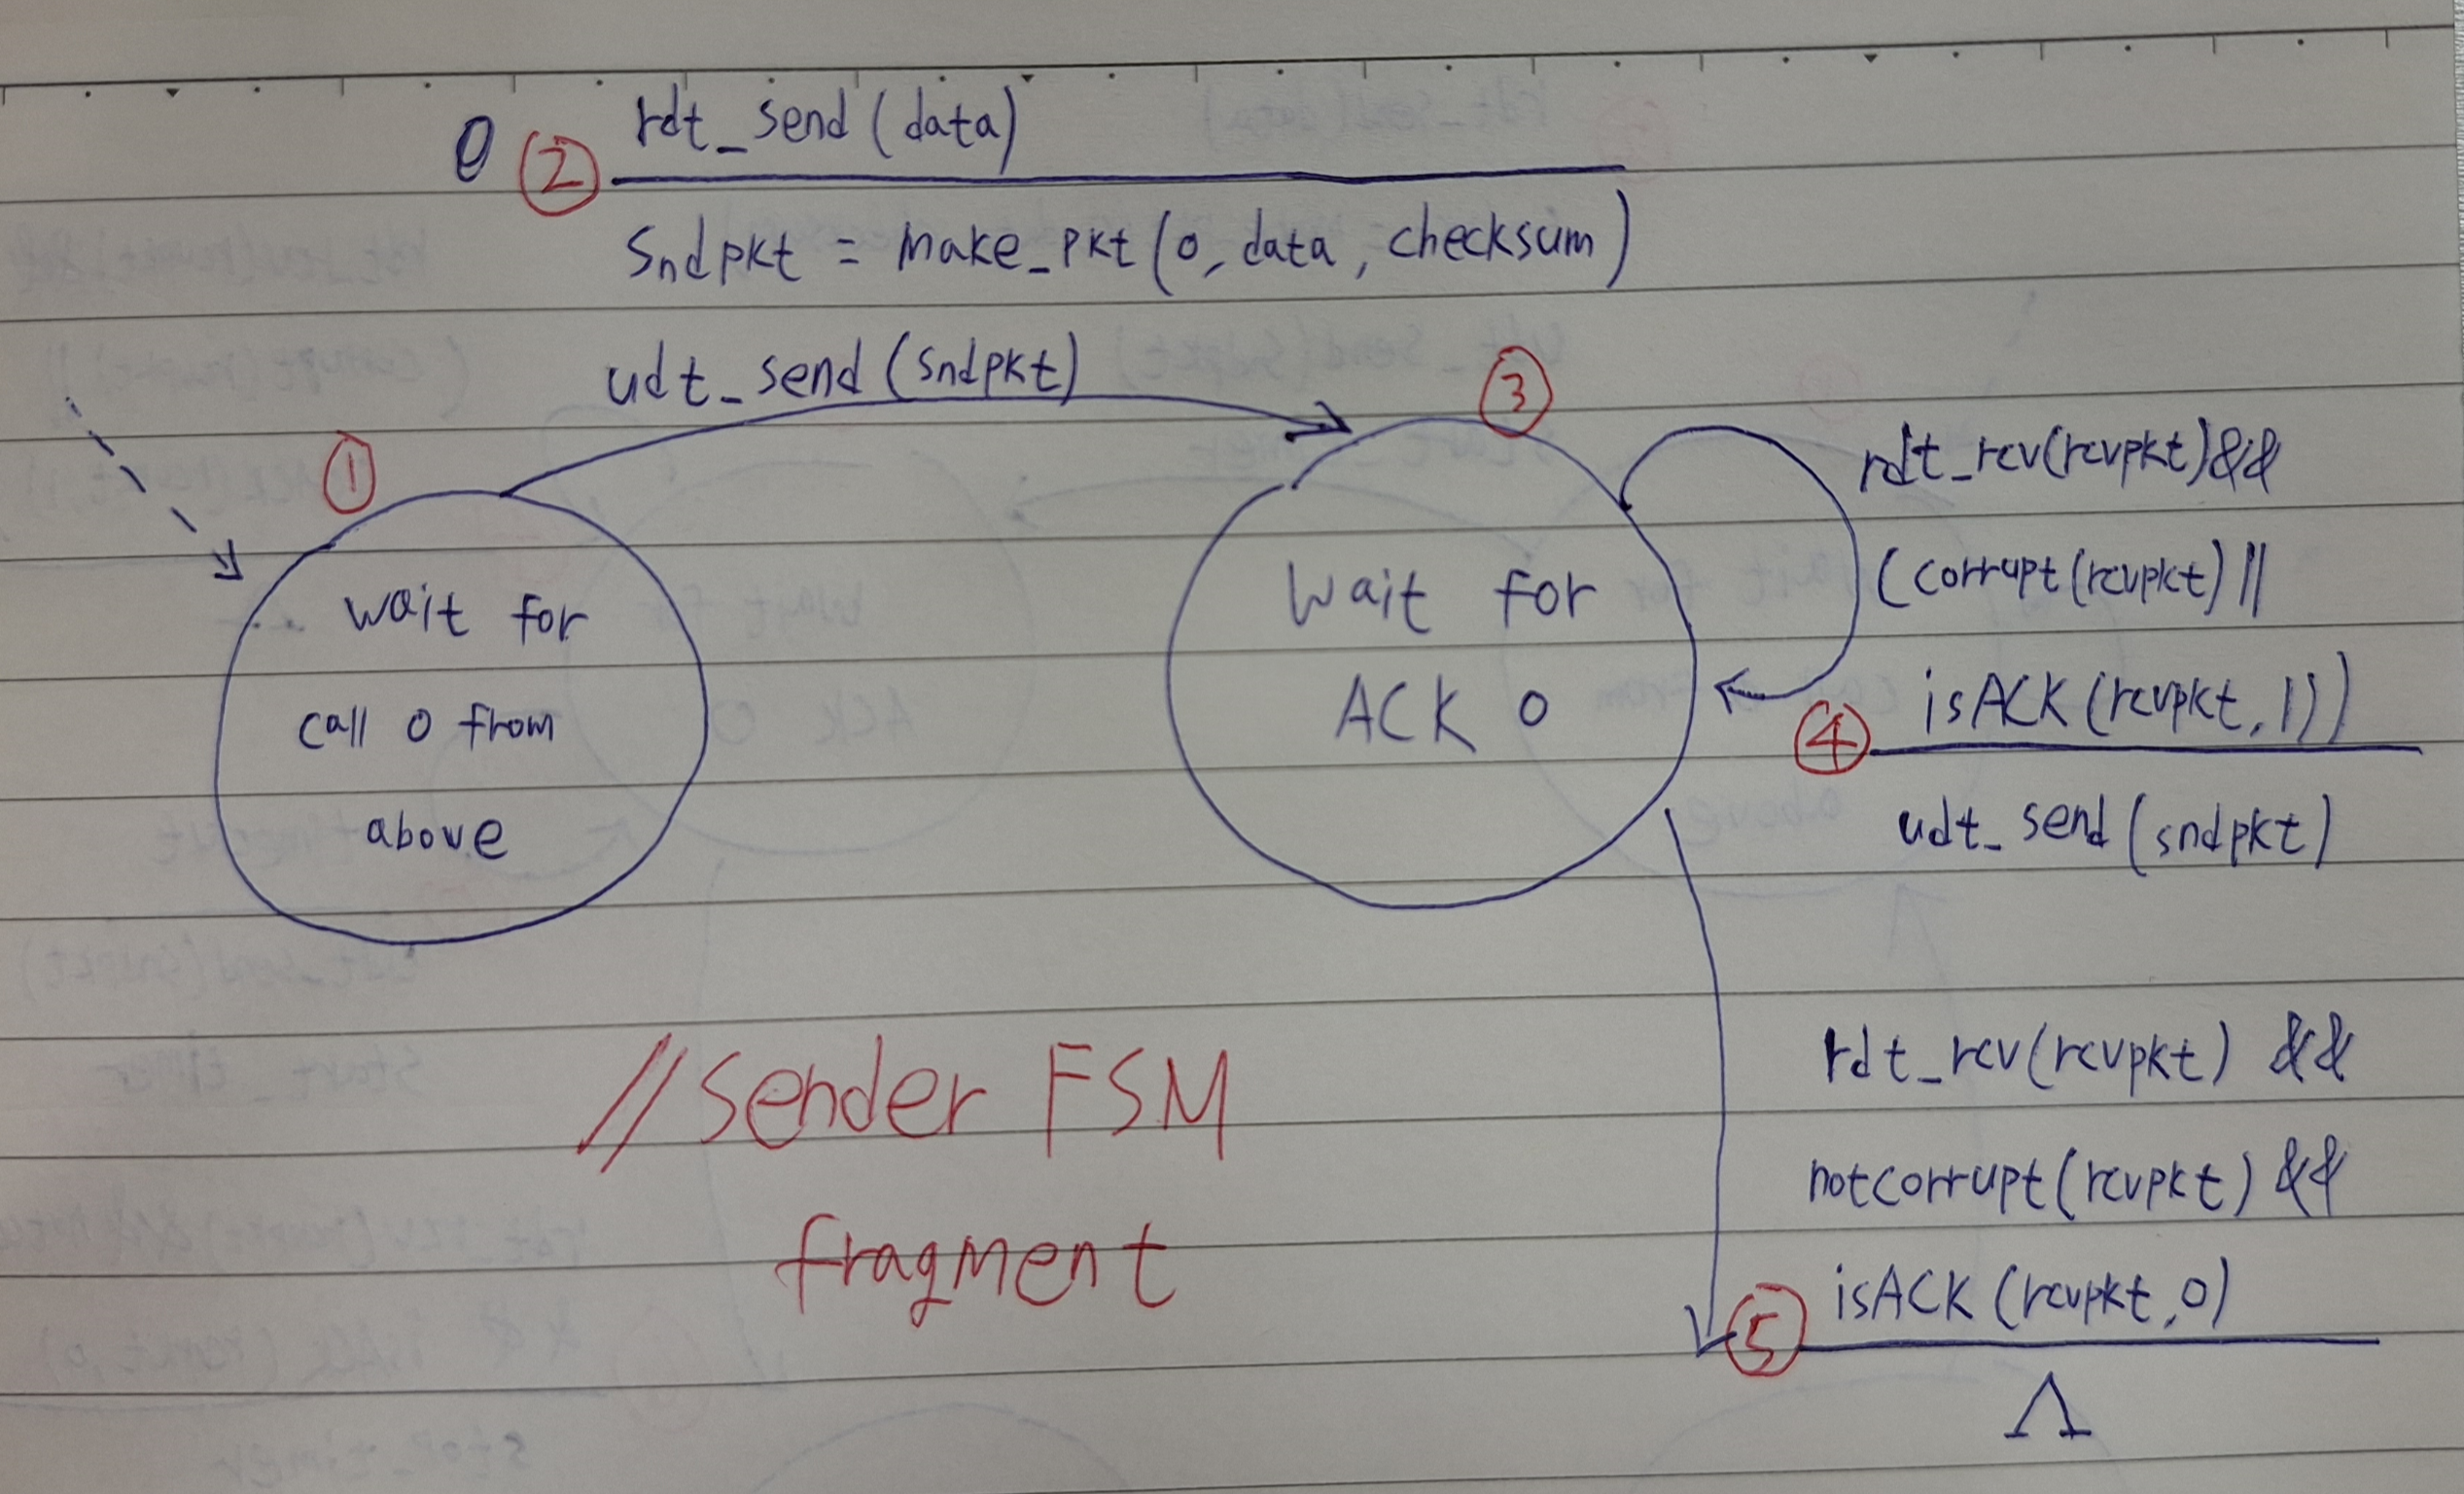 0 ② rdt_send(data)
sndpkt = make_pkt(0, data, checksum)
udt_send(sndpkt)
①
wait for
call 0 from
above
③
Wait for
ACK 0
rdt_rcv(rcvpkt)&&
(corrupt(rcvpkt)||
④ isACK(rcvpkt,1))
udt_send(sndpkt)
rdt_rcv(rcvpkt) &&
notcorrupt(rcvpkt) &&
⑤ isACK(rcvpkt,0)
Λ
//Sender FSM
fragment